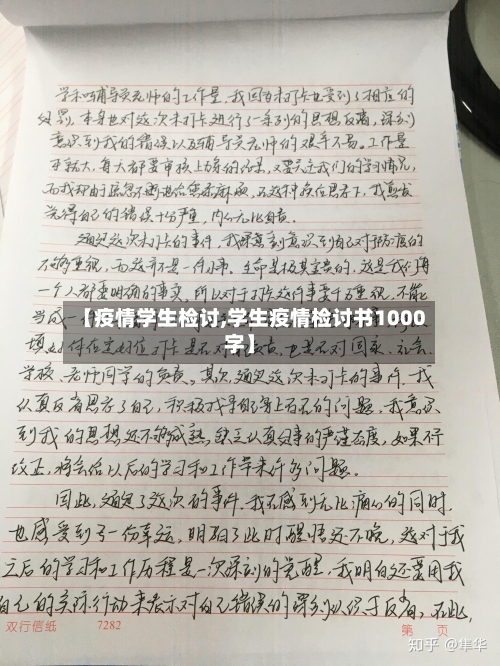 学和辅导员老师的工作量,我因为未打卡也受到了相应的
处罚,本身也对这次未打卡进行了一系列的思想反省,深刻
意识到我的错误以及辅导员老师的艰辛不易。工作量
本就大,每天都要审核上身的记录,又要关注我们的学习情况,
而我却由于疏忽不断给您添麻烦,在这种换位思考下,我真切
觉得自己的错误十分严重,内心无比自责。
通过这次未打卡的事件,我深意刻意识到自己对于防疫的
不够重视,而这并不是一件小事,生命是极其宝贵的,这是我们每
一个人都要明确的事实,所以对于打卡这件事要千万重视,不能
当成一
【疫情学生检讨,学生疫情检讨书1000
字】
学校、老师同学的负责。其次,通过这次未打卡的事件,我
认真反省思考了自己,积极找寻自身上存在的问题,我意识
到我的思想还不够成熟,缺乏认真做事的严谨态度,如果不
改正,将会给以后的学习和工作带来许多问题。
因此,通过了这次的事件,我在感到无比痛心的同时,
也感受到了一份幸运,明白了此时醒悟还不晚,这对于我
之后的学习和工作历程是一次深刻的觉醒,我明白还要用我
自己的实际行动来表示对自己错误的深刻认识于反省,在此,
双行信纸 7282 第 页
知乎 @隼华